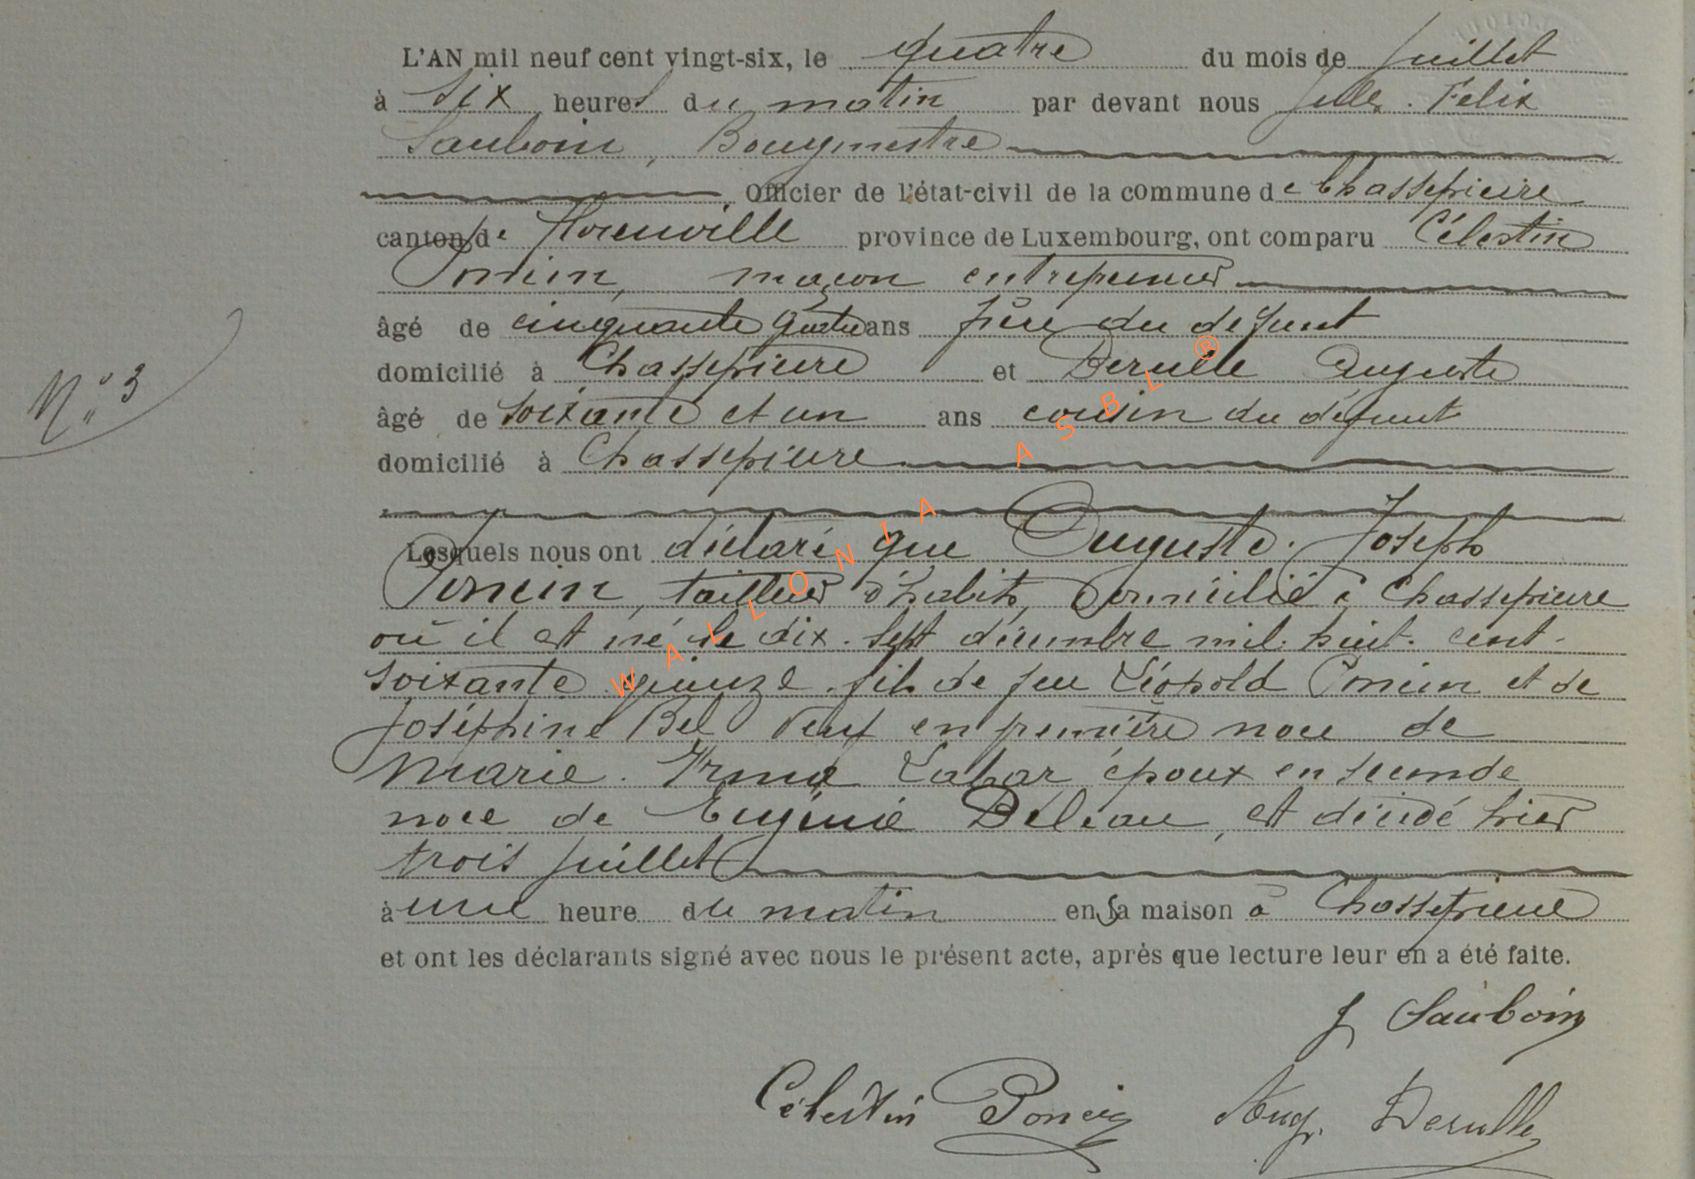 L'AN mil neuf cent vingt-six, le quatre du mois de Juillet
à six heures du matin par devant nous Jules. Felix
Sauboin, Bourgmestre
Officier de l'état-civil de la commune de Chassepierre
canton de Florenville province de Luxembourg, ont comparu Célestin
Poncin, maçon entrepreneur
âgé de cinquante quatre ans frère du défunt
N° 3
domicilié à Chassepierre et Derulle Auguste
âgé de soixante et un ans cousin du défunt
domicilié à Chassepierre
Lesquels nous ont déclaré que Auguste. Joseph
Poncin, tailleur d'habits, domicilié à Chassepierre
où il est né le dix-sept décembre mil. huit. cent-
soixante quinze. fils de feu Léopold Poncin et de
Joséphine Bel veuf en première noce de
Marie. Irma Lahar époux en seconde
noce de Eugénie Deleau, est décédé hier
trois juillet
à une heure du matin en sa maison à Chassepierre
et ont les déclarants signé avec nous le présent acte, après que lecture leur en a été faite.
J Sauboin
Célestin Poncin Aug. Derulle
WALLONIA ASBL ®